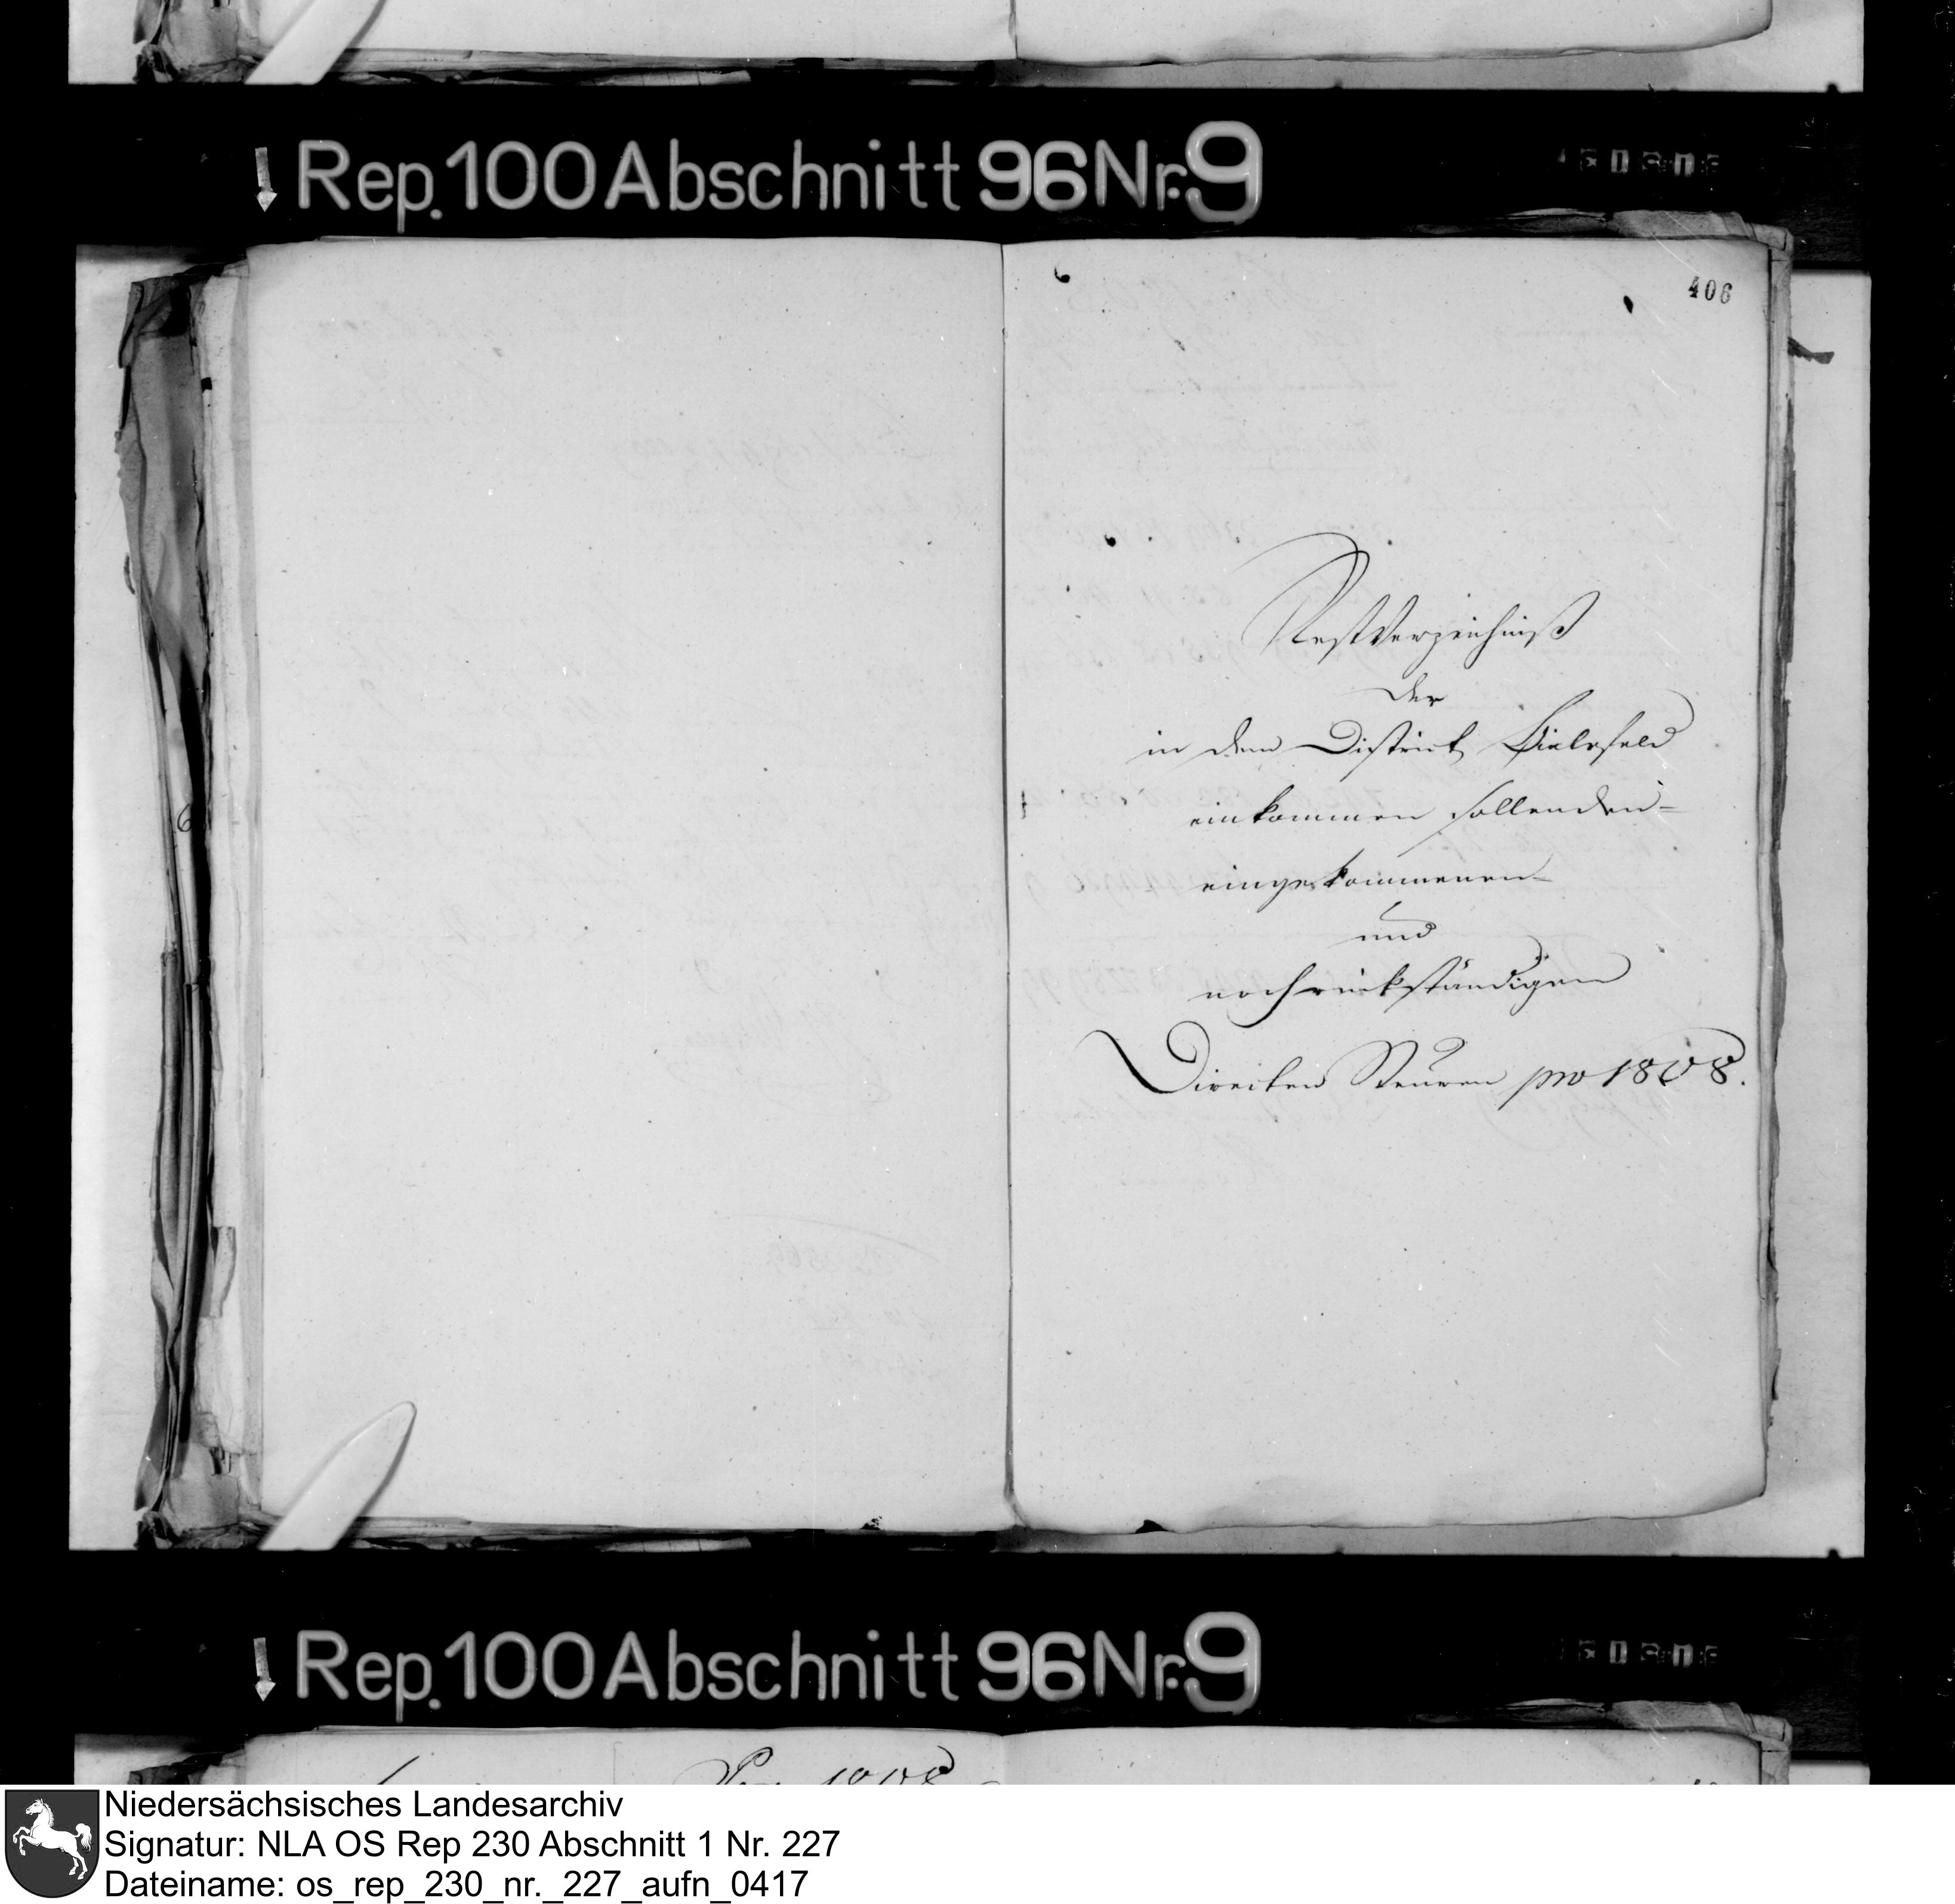 Rep. 100 Abschnitt 96 Nr. 9
406
RestVerzeichniß
der
in dem District Bielefeld
einkommen sollenden-
eingekommenen-
und
noch rückständigen
Direcken Steuren pro 1808.
6
Rep. 100 Abschnitt 96 Nr. 9
Pro 1808
Niedersächsisches Landesarchiv
Signatur: NLA OS Rep 230 Abschnitt 1 Nr. 227
Dateiname: os_rep_230_nr._227_aufn_0417